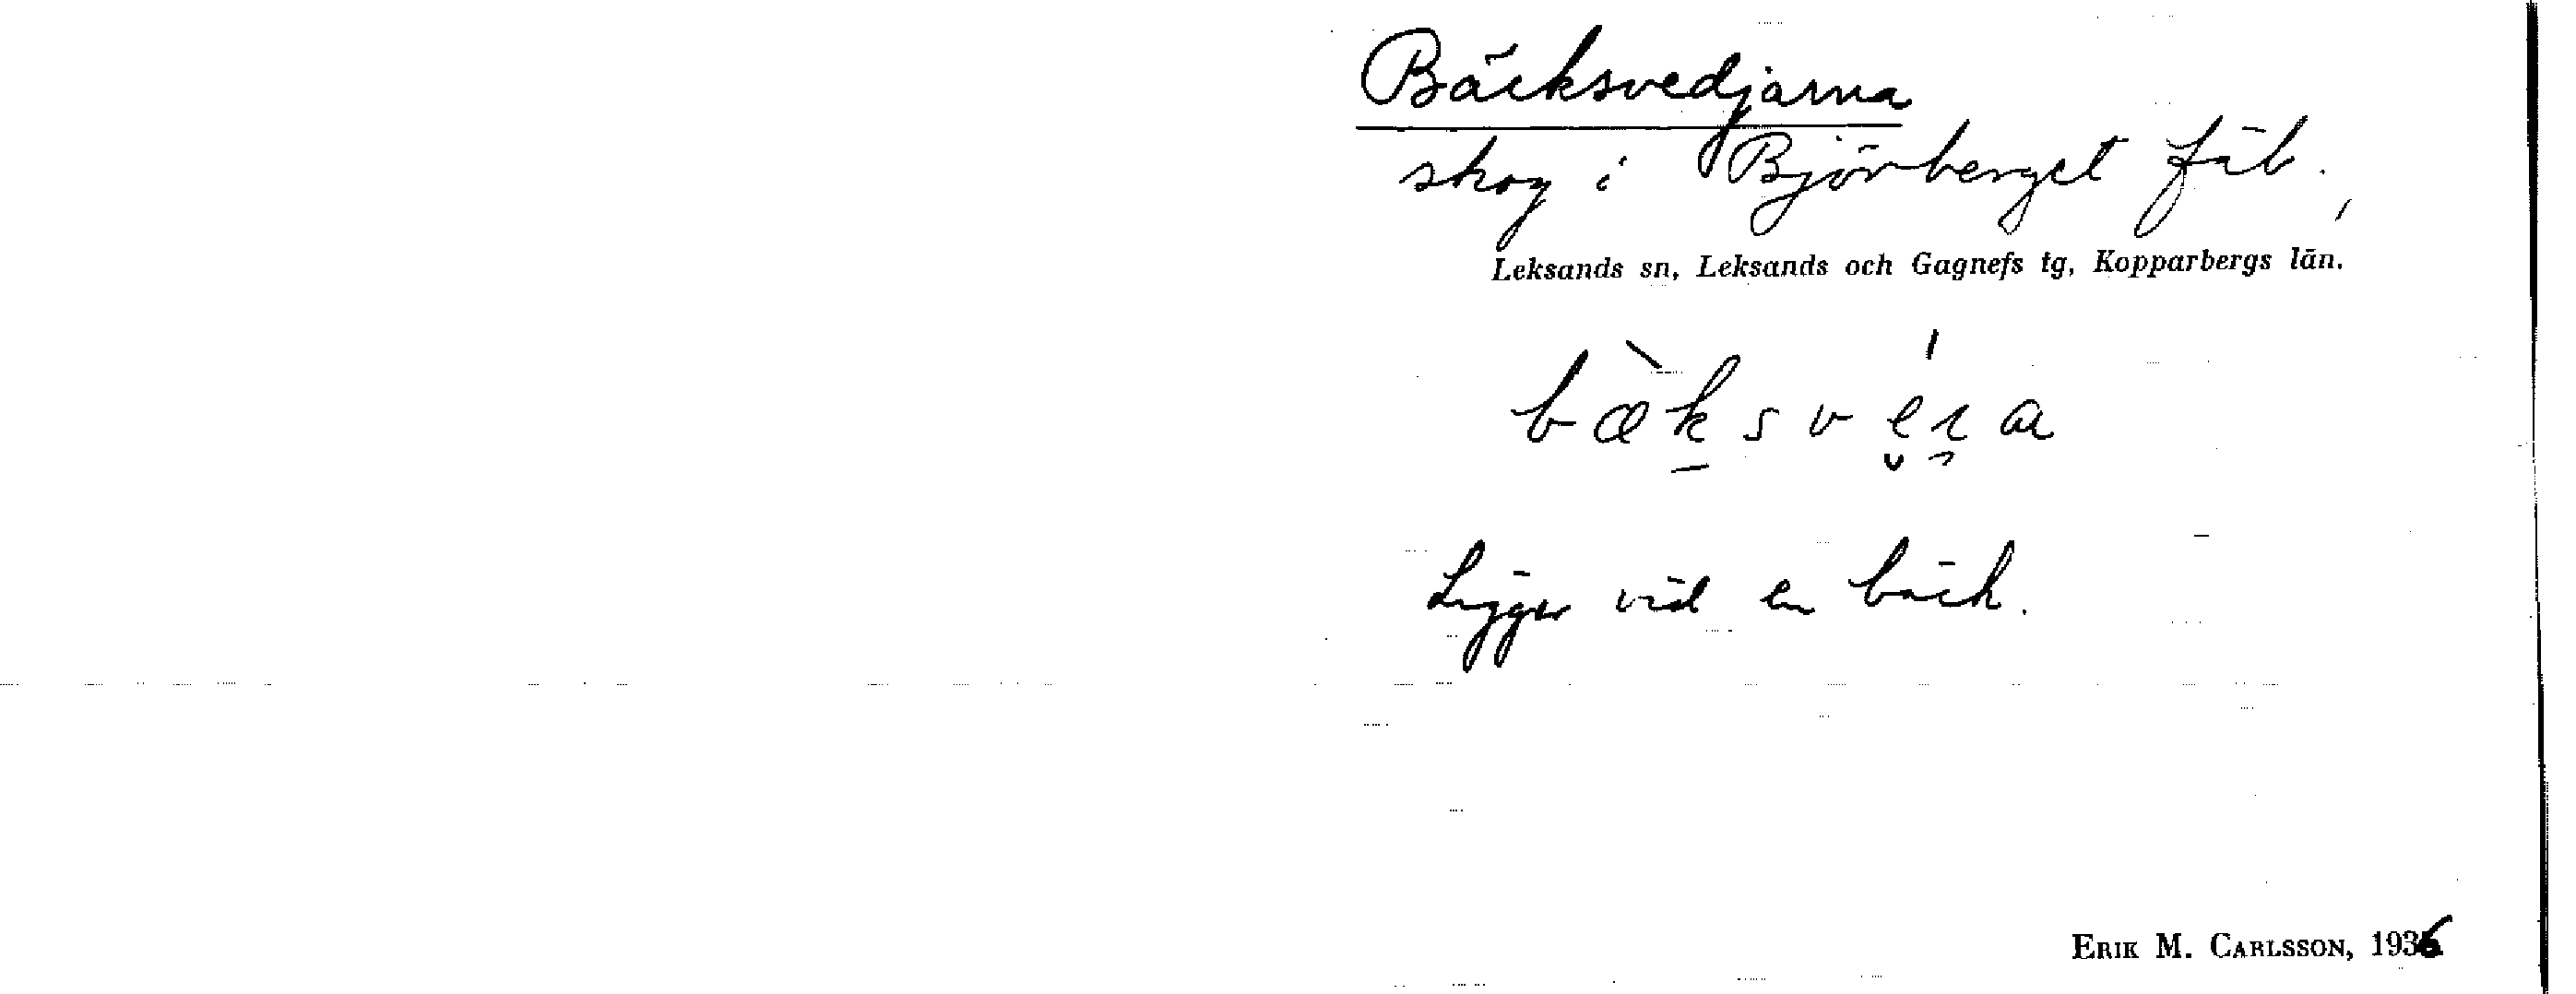 Bäcksvedjarna
skog i Björberget fäb.,
Leksands sn, Leksands och Gagnefs tg, Kopparbergs län.
Ligger vid en bäck.
ERIK M. CARLSSON, 1936